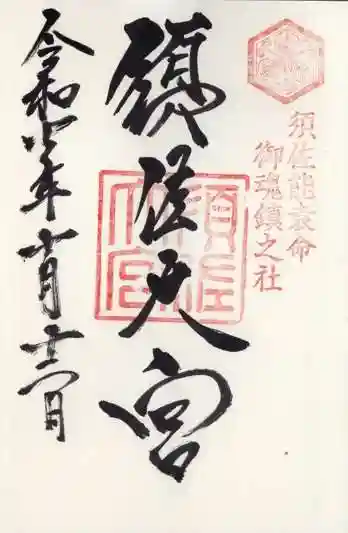 須佐能袁命
御魂鎮之社
須佐大宮
須佐大宮
令和四年十月十六日